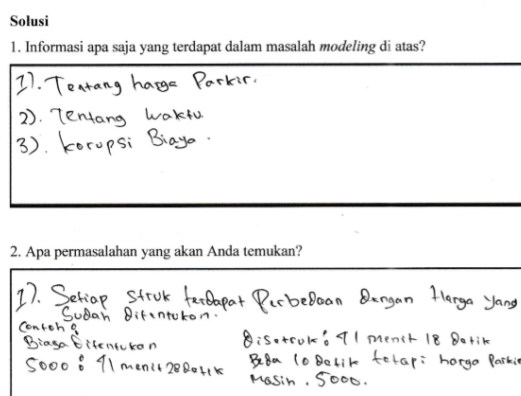 Solusi
1. Informasi apa saja yang terdapat dalam masalah modeling di atas?
1). Tentang harga Parkir.
2). Tentang waktu
3). korupsi Biaya.
2. Apa permasalahan yang akan Anda temukan?
1). Setiap Struk terdapat Perbedaan Dengan Harga yang
Sudah Ditentukan.
Contoh :
Biaya Ditentukan
5000 : 41 menit 28 Detik
Distruk : 41 menit 18 Detik
Beda 10 Detik tetapi harga Parkir
Masih . 5000.